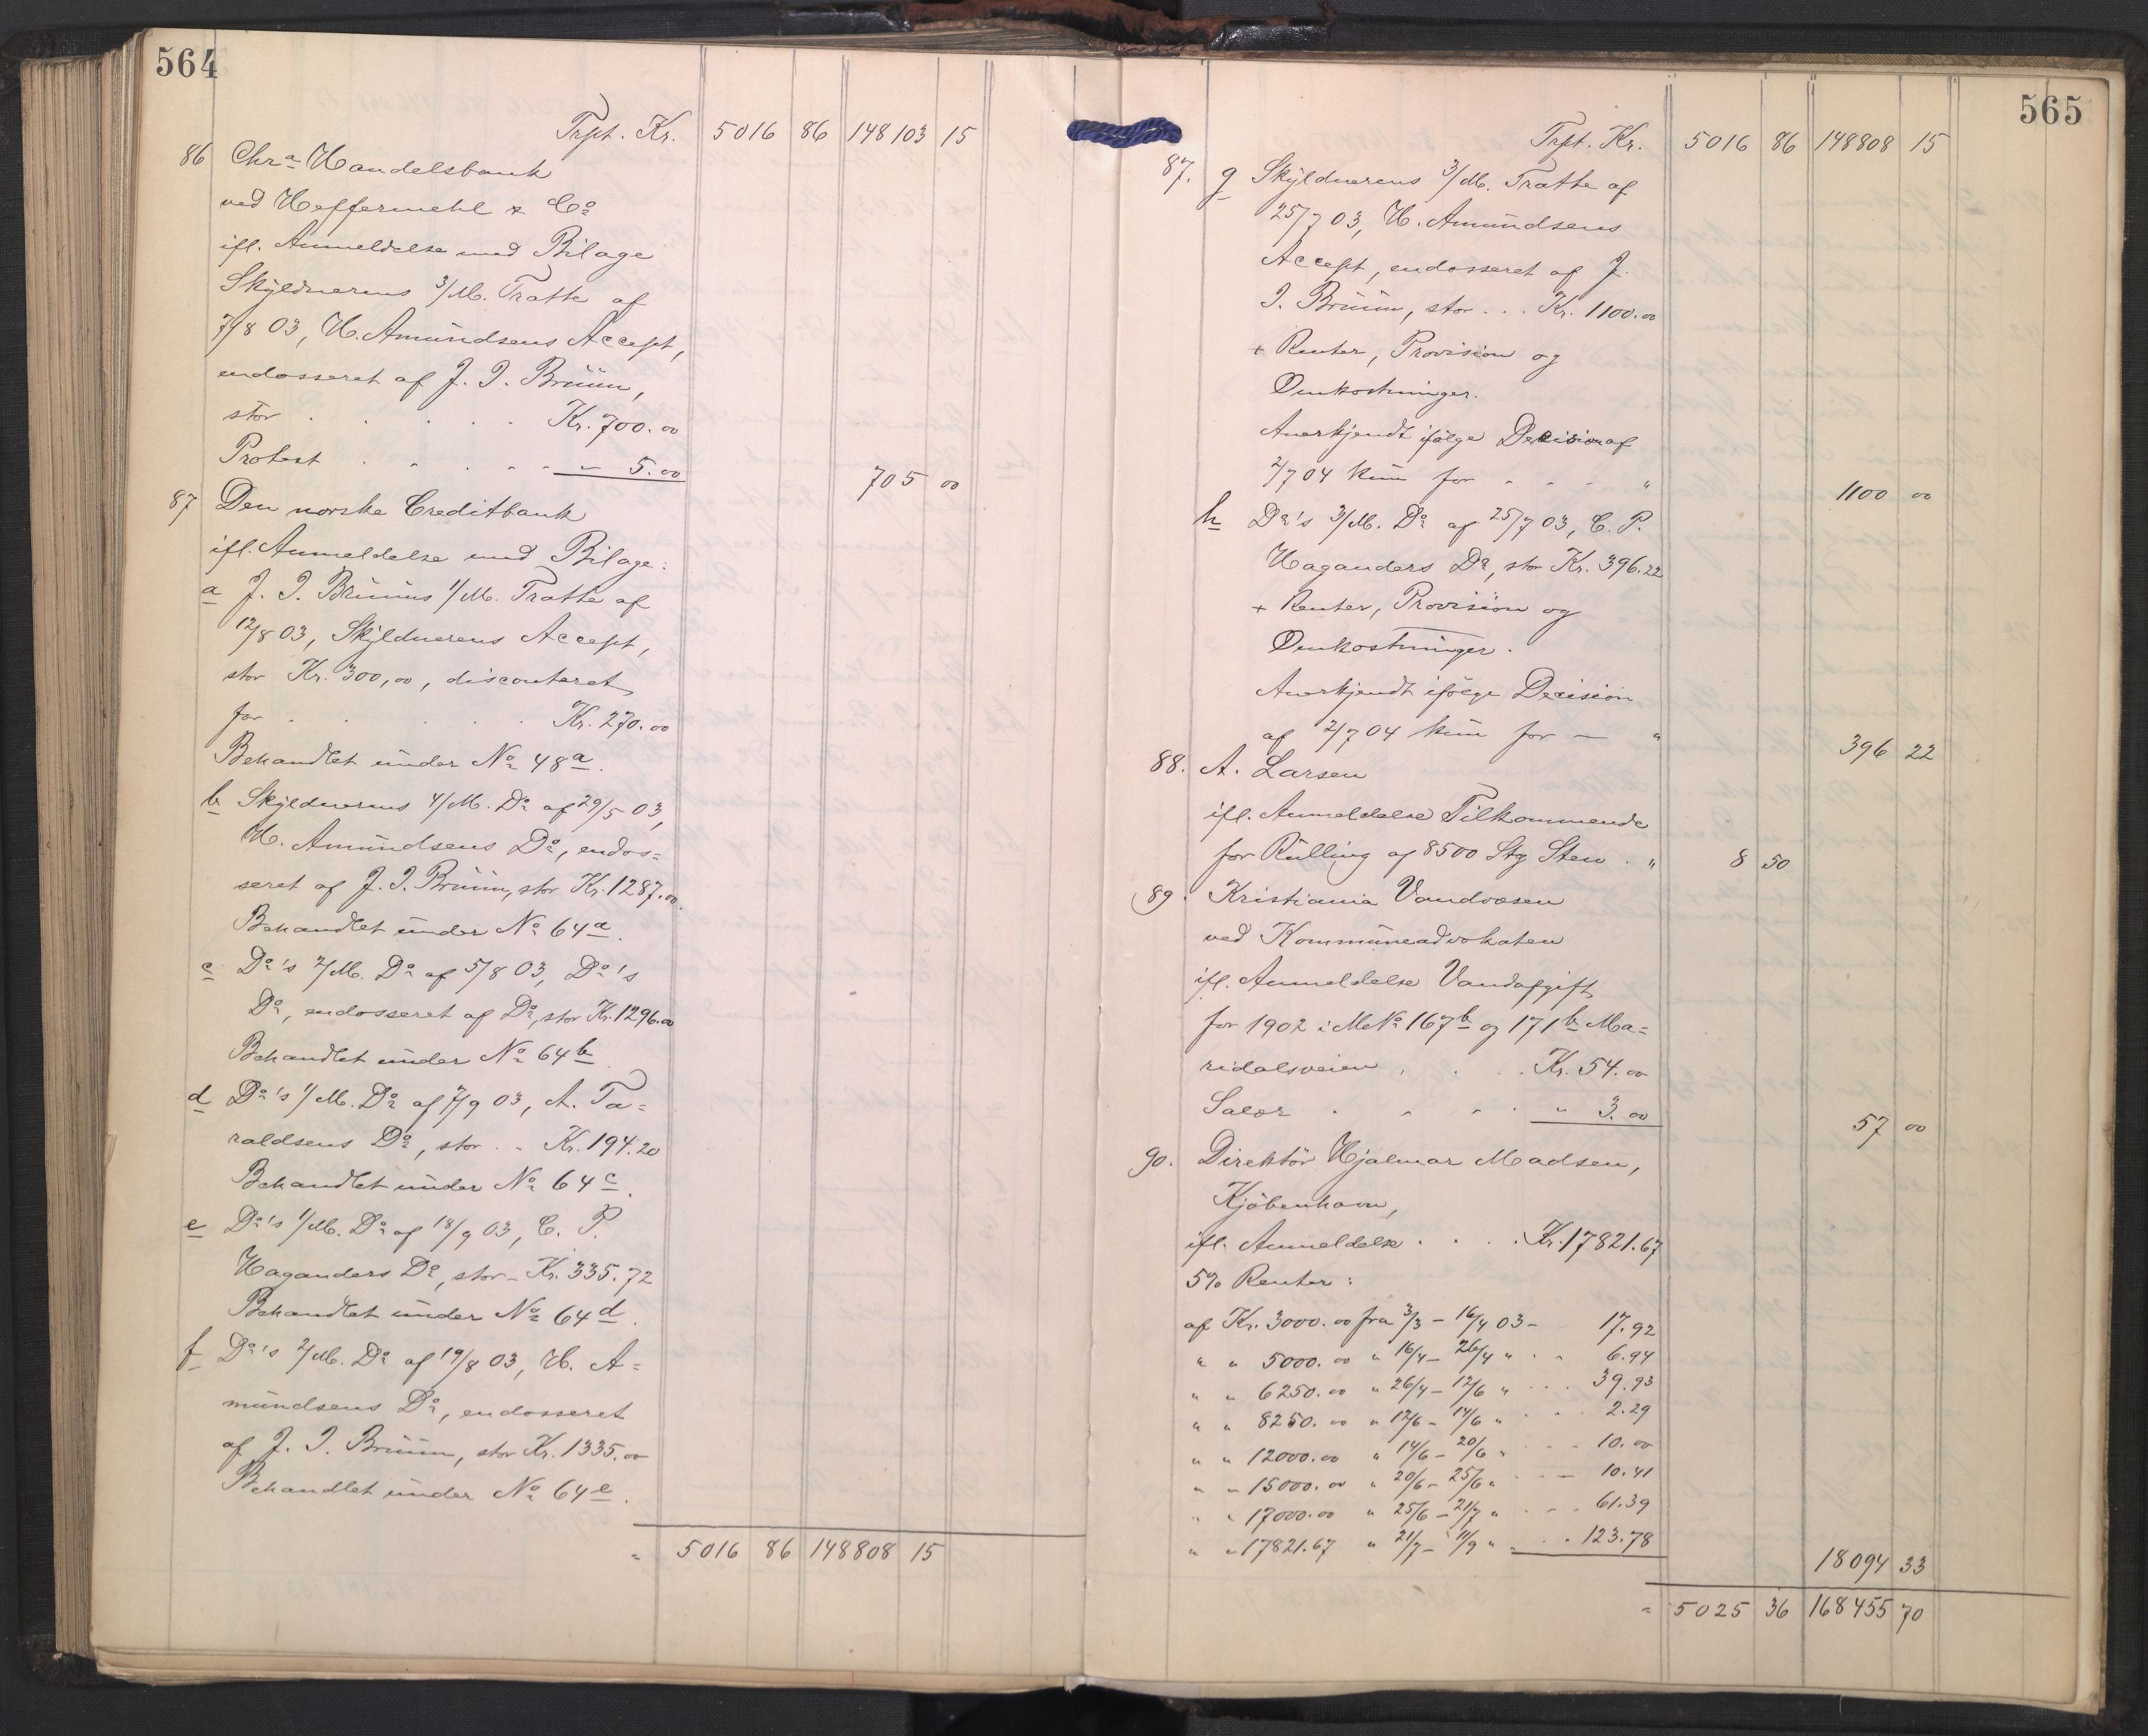 564
Trpt. Kr. 5016 86 148103 15
86 Chra Handelsbank
ved Heffermehl & Co
ifl. Anmeldelse med Bilage
Skyldnerens 3/M. Tratte af
7/8 03, H. Amundsens Accept,
endosseret af J. I. Bruun,
stor . . . . . Kr. 700.00
Protest . . . . . " 5.00 705 00
87 Den norske Creditbank
ifl. Anmeldelse med Bilage:
a J. I. Bruuns 1/M. Tratte af
12/8 03, Skyldnerens Accept,
stor Kr. 300,00, disconteret
for . . . . . Kr. 270.00
Behandlet under No 48a.
b Skyldnerens 4/M. Do af 29/5 03,
H. Amundsens Do, endos=
seret af J. I. Bruun, stor Kr. 1287.00.
Behandlet under No 64a.
c Do's 2/M. Do af 5/8 03, Do's
Do, endosseret af Do, stor Kr. 1296.00
Behandlet under No 64b.
d Do's 1/M. Do af 7/9 03, A. Ta=
raldsens Do, stor . . Kr. 194.20
Behandlet under No 64c.
e Do's 1/M. Do af 18/9 03, C. P.
Haganders Do, stor - Kr. 335.72
Behandlet under No 64d.
f Do's 2/M. Do af 19/8 03, H. A=
mundsens Do, endosseret
af J. I. Bruun, stor Kr. 1335.00
Behandlet under No 64e.
" 5016 86 148808 15
565
Trpt. Kr. 5016 86 148808 15
87. g Skyldnerens 3/M. Tratte af
25/7 03, H. Amundsens
Accept, endosseret af J.
I. Bruun, stor . . . Kr. 1100.00
+ Renter, Provision og
Omkostninger.
Anerkjendt ifølge Decision af
2/7 04 kun for - - - " 1100 00
h Do's 3/M. Do af 25/7 03, C. P.
Haganders Do, stor Kr. 396.22
+ Renter, Provision og
Omkostninger.
Anerkjendt ifølge Decision
af 2/7 04 kun for — " 396 22
88. A. Larsen
ifl. Anmeldelse Tilkommende
for Rulling af 8500 Stg Sten . " 8 50
89. Kristiania Vandvæsen
ved Kommuneadvokaten
ifl. Anmeldelse Vandafgift
for 1902 i M No 167b og 171b Ma=
ridalsveien . . . Kr. 54.00
Salær . . . . " 3.00 57 00
90. Direktør Hjalmar Madsen,
Kjøbenhavn,
ifl. Anmeldelse . . . . Kr. 17821.67
5% Renter:
af Kr. 3000.00 fra 3/3 - 16/4 03 - 17.92
" " 5000.00 " 16/4 - 26/4 " . . 6.94
" " 6250.00 " 26/4 - 12/6 " . . . 39.93
" " 8250.00 " 12/6 - 14/6 " . . . 2.29
" " 12000.00 " 14/6 - 20/6 " . . . 10.00
" " 15000.00 " 20/6 - 25/6 " . . . 10.41
" " 17000.00 " 25/6 - 21/7 " . . . 61.39
" " 17821.67 " 21/7 - 11/9 " . . . 123.78 18094 33
" 5025 36 168455 70